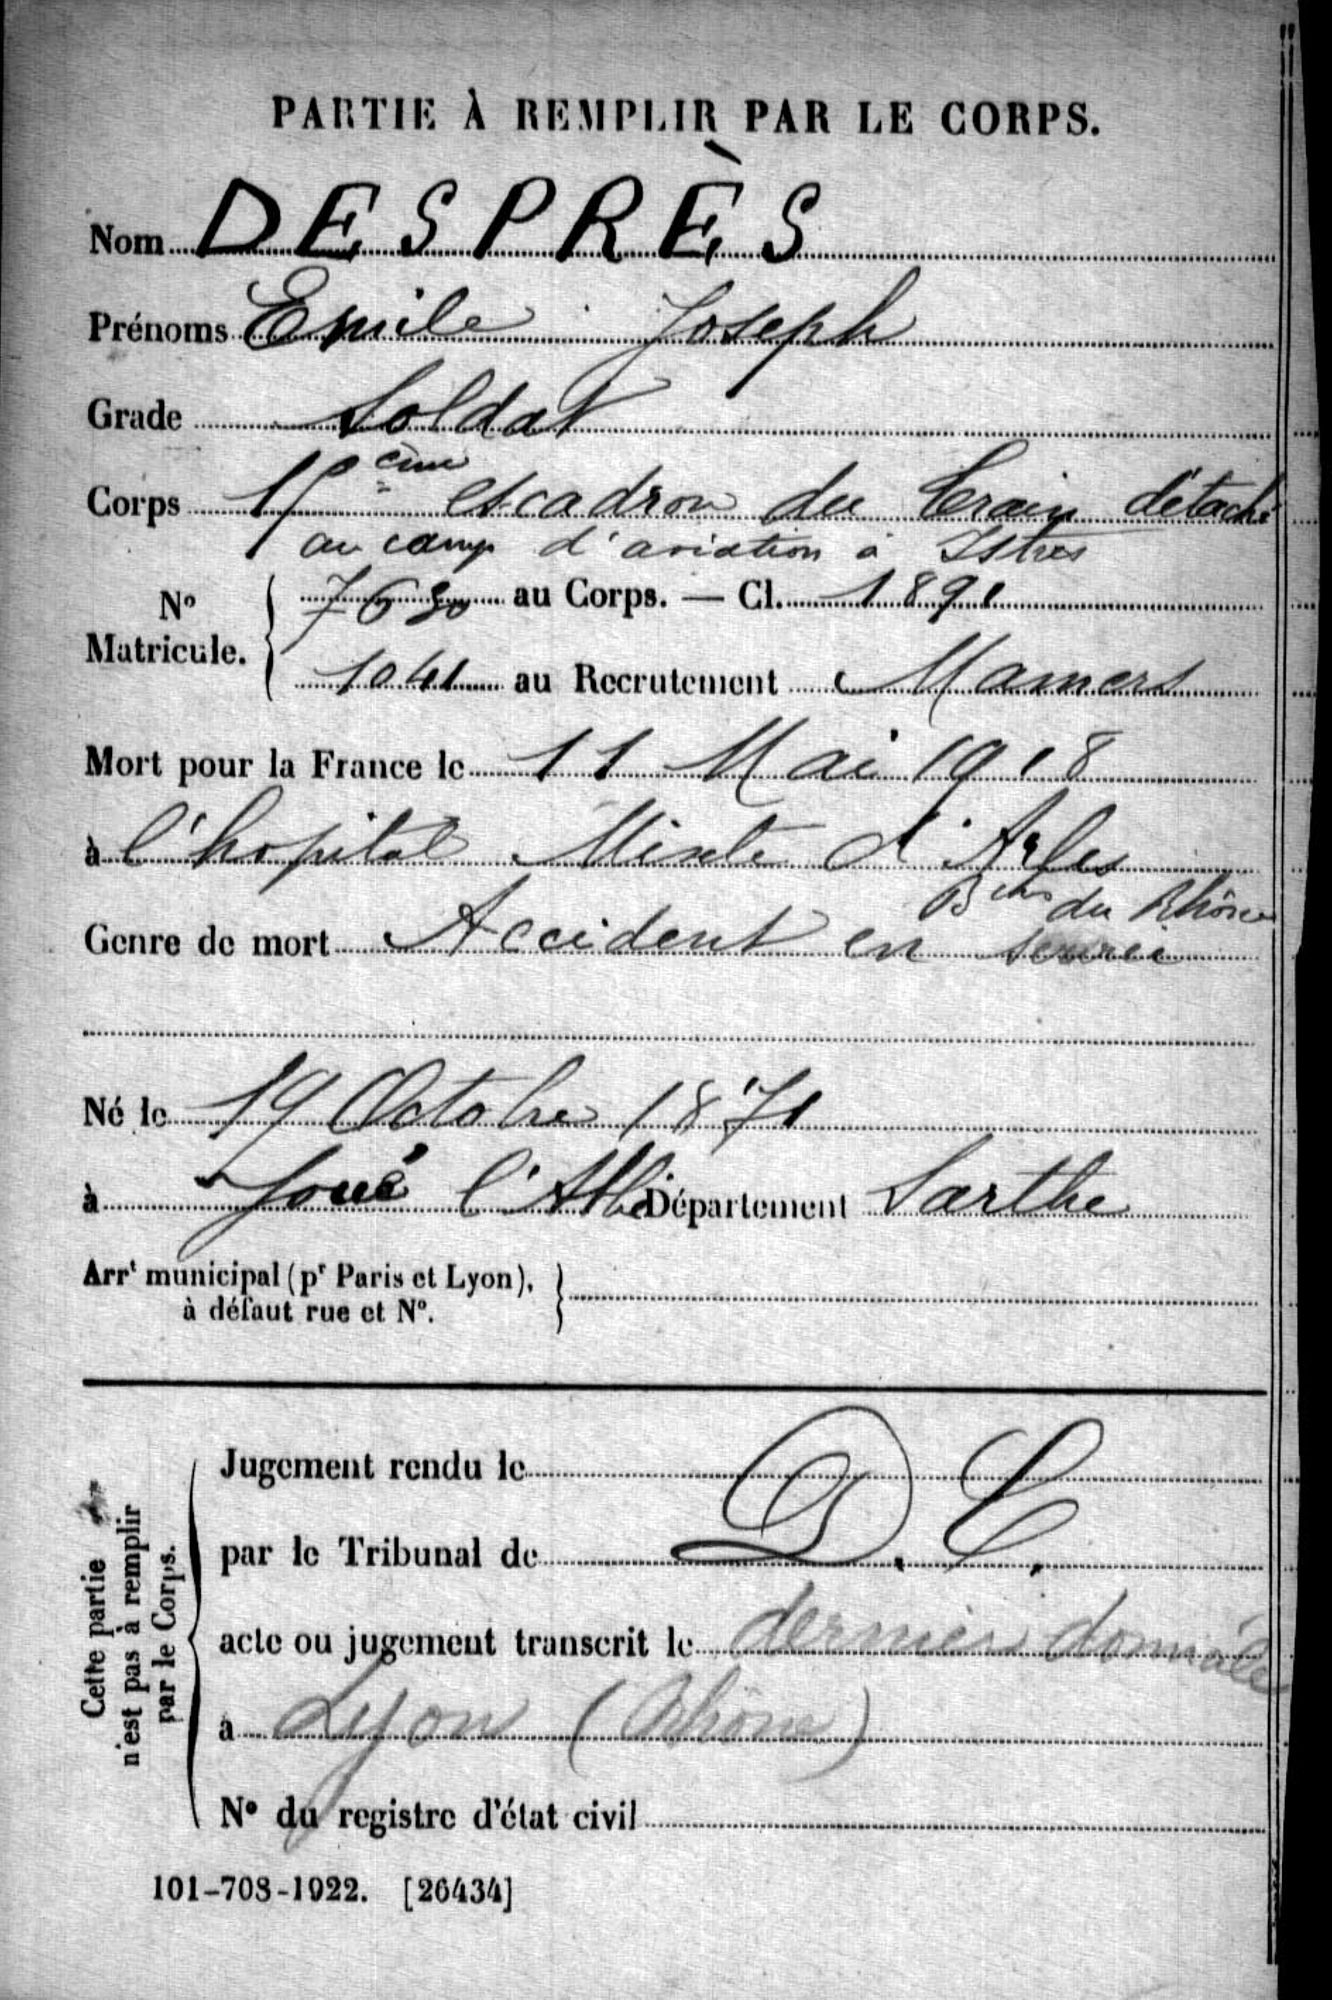 PARTIE À REMPLIR PAR LE CORPS.
Nom DESPRÈS
Prénoms Emile Joseph
Grade Soldat
Corps 1 ème escadron du train détaché
au camp d'aviation à Istres
N° Matricule. 7630 au Corps. — Cl. 1891
1041 au Recrutement Mamers
Mort pour la France le 11 Mai 1918
à l'hopital Mixte d'Arles
Bches du Rhône
Genre de mort Accident en
Né le 19 Octobre 1871
à Joué l'Abbé Département Sarthe
Arrt municipal (pr Paris et Lyon),
à défaut rue et N°.
Cette partie
n'est pas à remplir
par le Corps.
Jugement rendu le
D. C.
par le Tribunal de
acte ou jugement transcrit le dernier domicile
à Lyon (Rhône)
N° du registre d'état civil
101-708-1922. [26434]